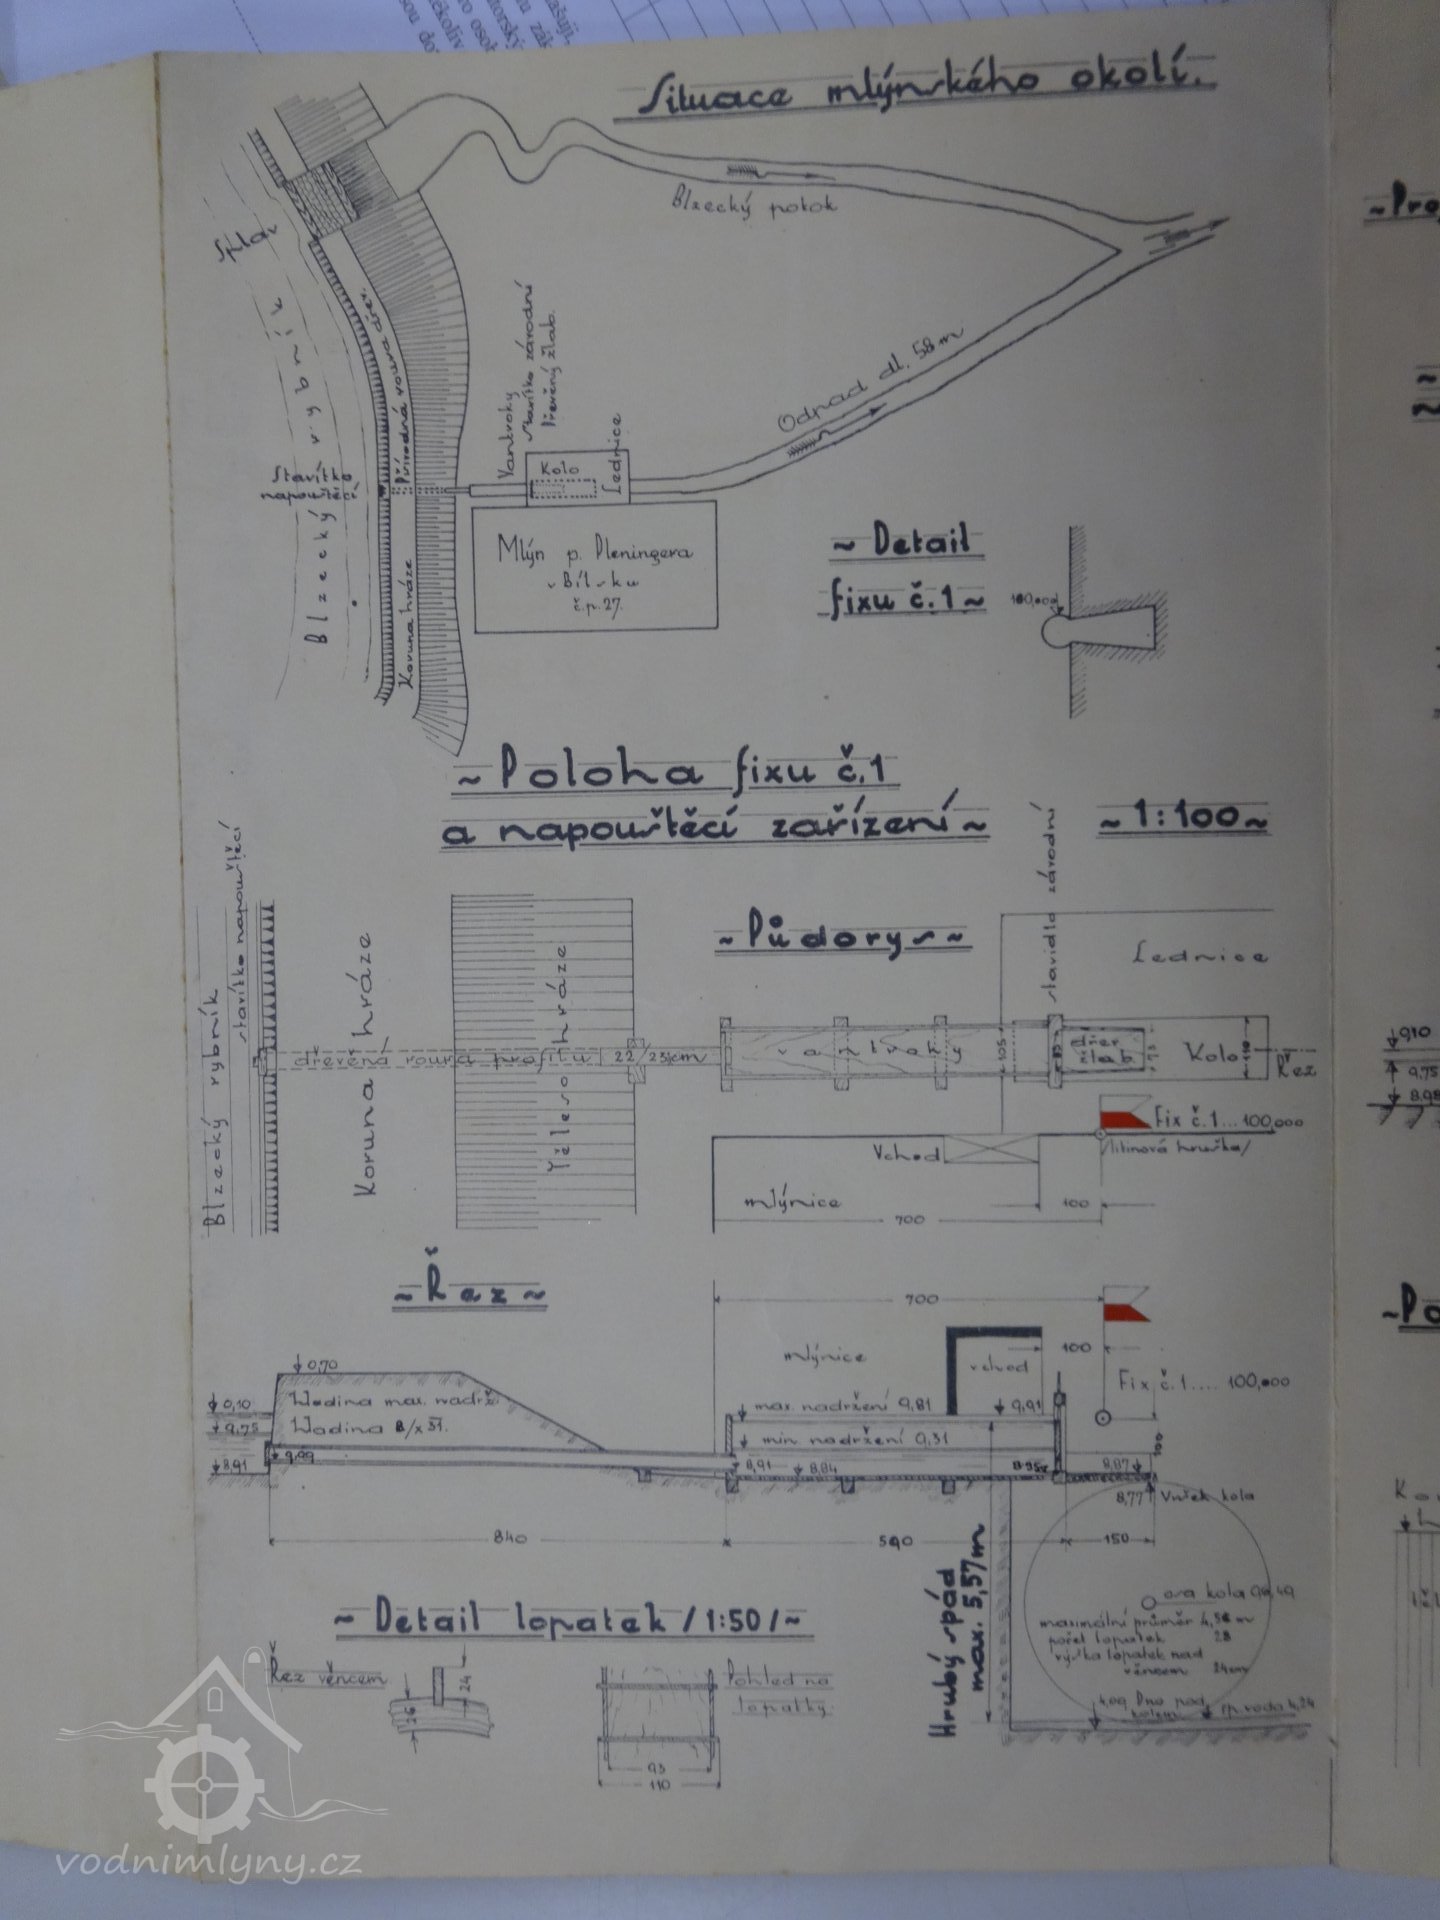 Situace mlýnského okolí.
Blzecký potok
Splav
Blzecký rybník
Přívodná roura dřev.
Stavítko
napouštěcí
Koruna hráze
Vantroky
Stavítko závodní
Dřevěný žlab.
Kolo
Lednice
Odpad dl. 58 m
Mlýn p. Pleningera
v Bílsku
č.p. 27.
~ Detail
fixu č.1 ~
100,000
~ Poloha fixu č.1
a napouštěcí zařízení ~
~ 1:100 ~
~ Půdorys ~
Blzecký rybník
stavítko napouštěcí
Koruna hráze
Těleso hráze
dřevěná roura profilu 22/23cm
vantroky
105
stavidlo závodní
Lednice
Kolo
110
Řez
Fix č.1...100,000
/litinová hruška/
Vchod
mlýnice
100
700
~ Řez ~
700
mlýnice
vchod
100
Fix č.1.... 100,000
0,70
Hladina max. nadrž.
0,10
9,75
Hladina 8/XI.
9,09
8,91
max. nadržení 9,81
9,91
min. nadržení 9,31
8,91
8,84
8,87
100
8,77
Vršek kola
840
590
150
Hrubý spád
max. 5,57m
osa kola 96,49
maximální průměr 4,56 m
počet lopatek 28
výška lopatek nad
věncem 24cm
4,09 Dno pod
kolem
sp. voda 4,24
~ Detail lopatek /1:50/ ~
Řez věncem
24
26
Pohled na
lopatky.
93
110
~Pro
0,10
9,75
8,98
~Po
vodnimlyny.cz